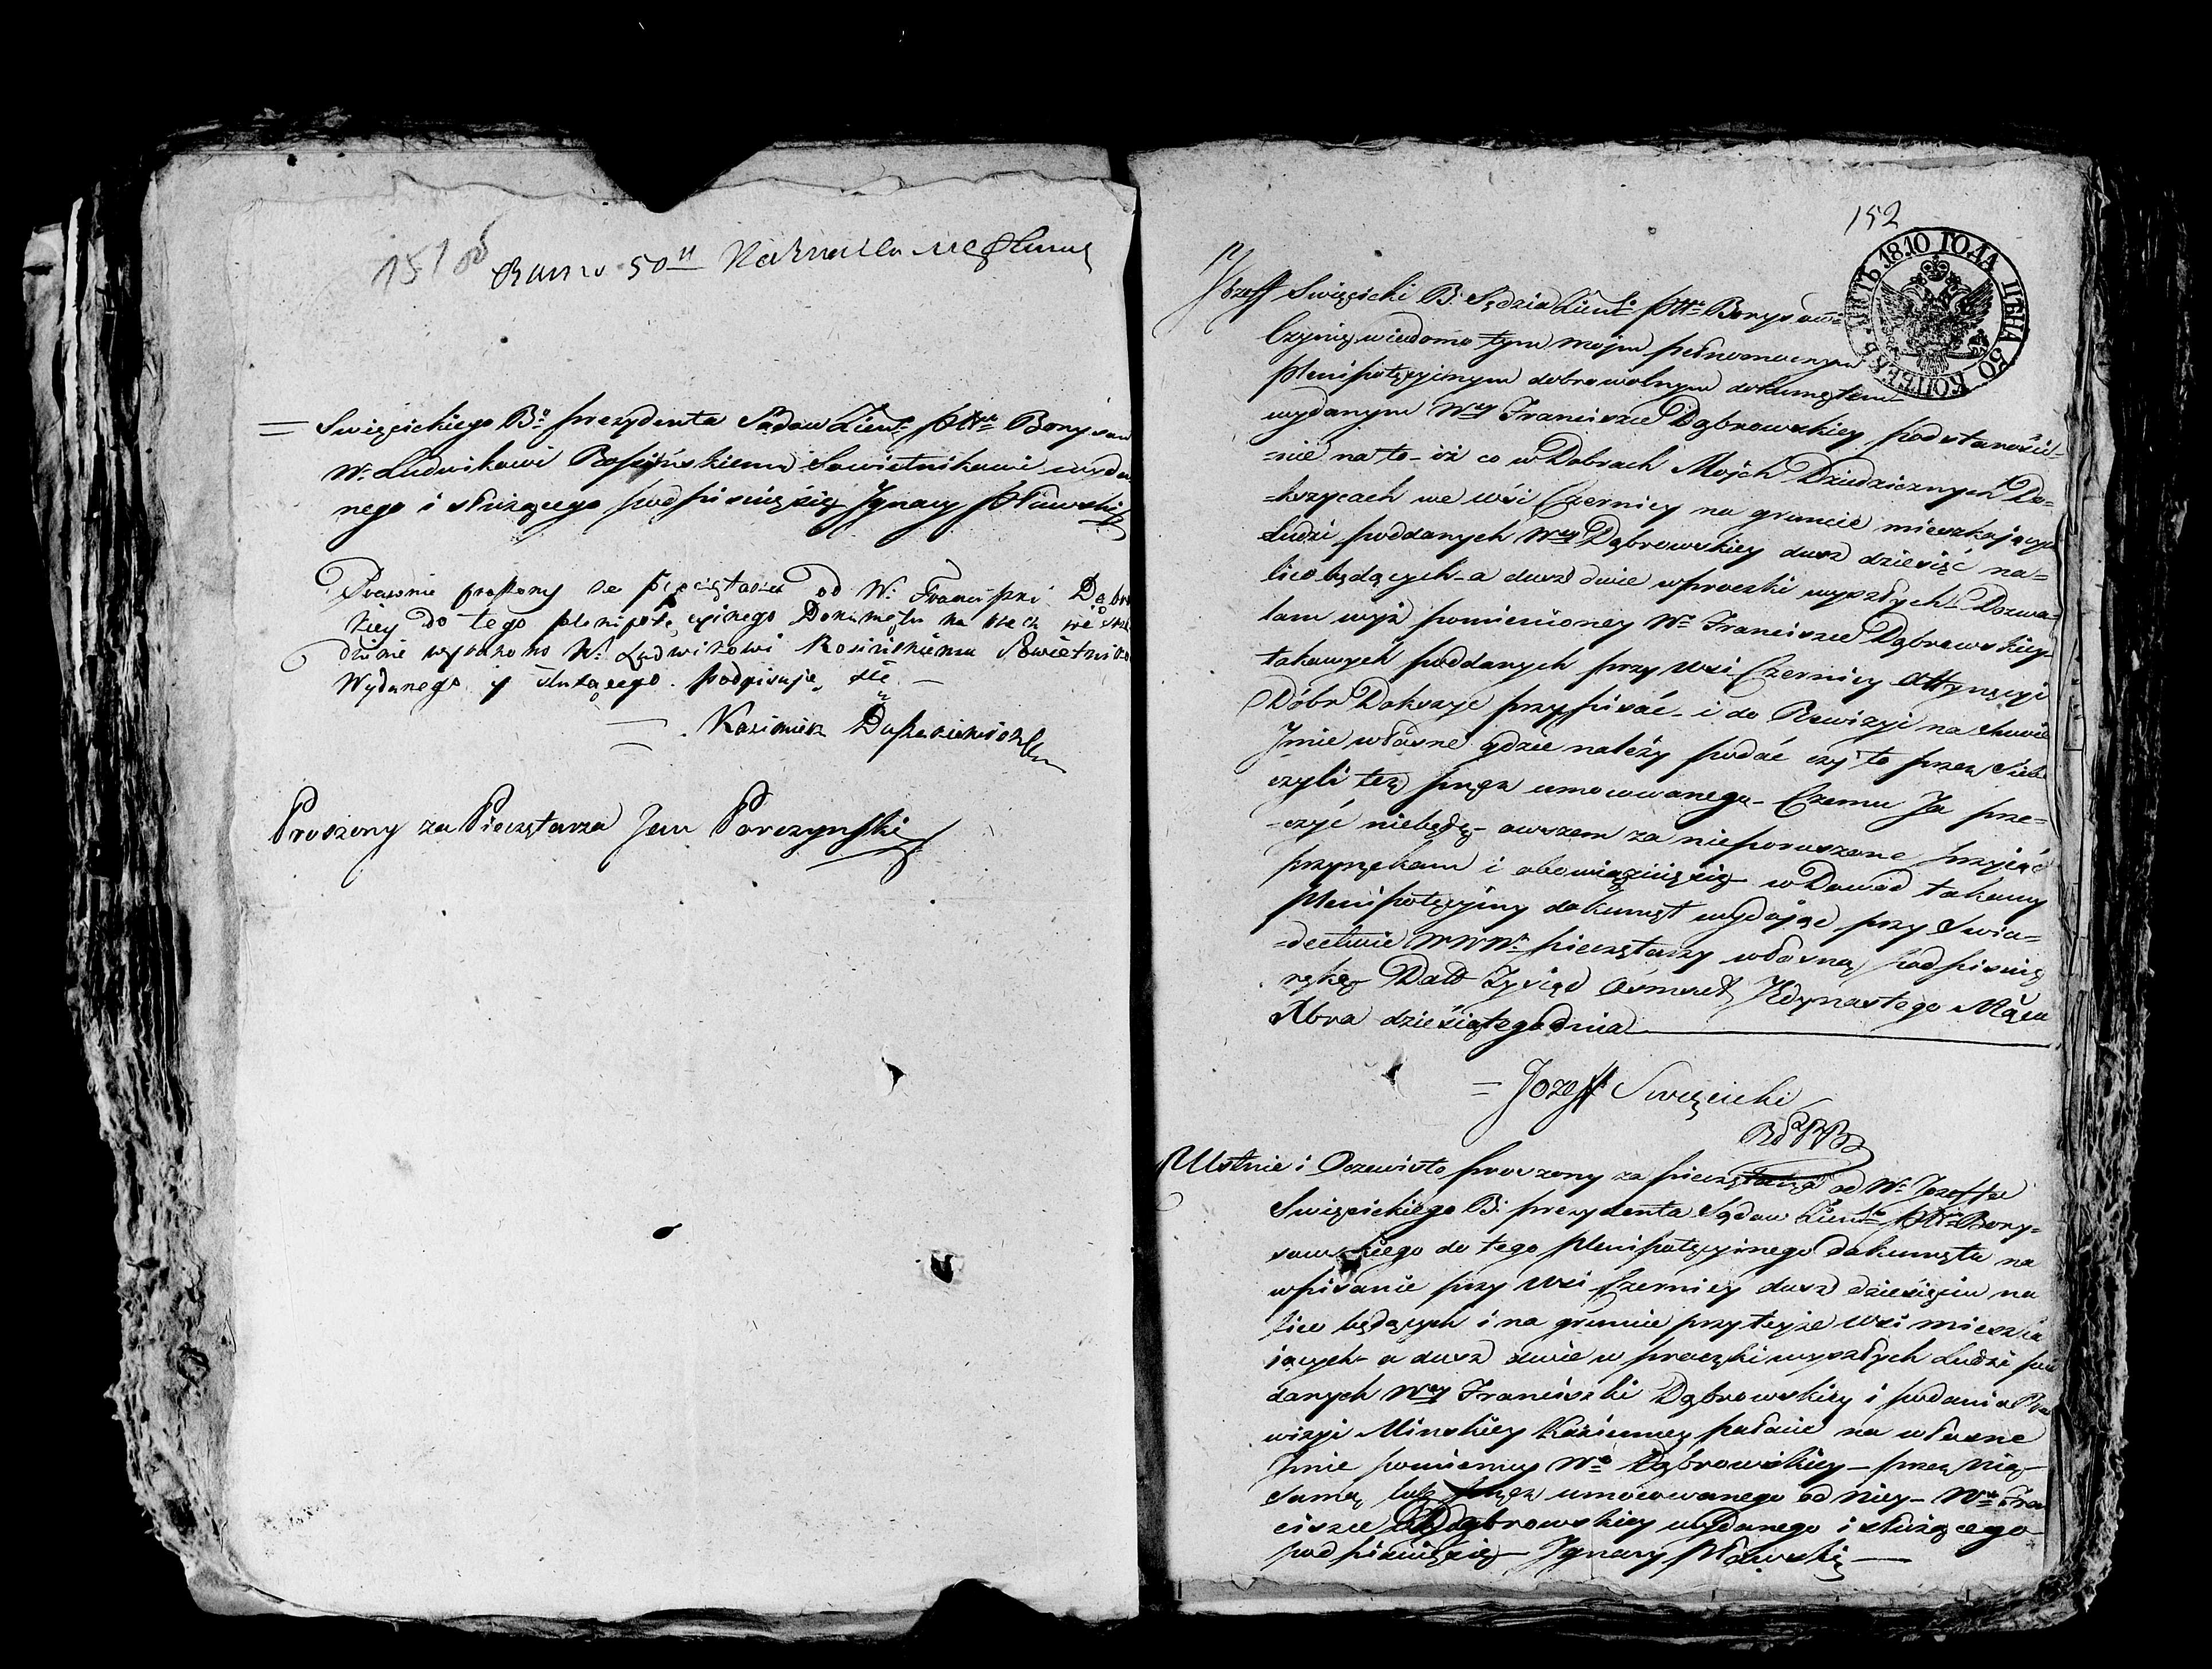 151 об
Swięcickiego B. Prezydenta Sądow Ziem. Pttu Borysow
W. Ludwikowi Rosińskiemu Sowietnikowi wyda
nego i służącego podpisuię się Ignacy
proszony za pieczętarza od W. Franciszki Dąbro
kiey do tego plenipotęcyinego Dokumętu na
W. Ludwikowi Rosińskiemu Sowietniko
Wydanego y służącego podpisuję się
Kazimierz
Proszony za Pieczętarza Jan Porczynski
152
ЛИСТЪ 1810 ГОДА ЦѢНА 50 КОПѢЕКЪ
Jozeff Swięcicki B. Sędzia Ziem. Pttu Borysow
Czynię wiadomo tym moim pełnomocnym
Plenipotęcyinym dobrowolnym dokumętem
wydanym Wney Franciszce Dąbrowskiey
=nie na to iż co w Dobrach Moich Dziedzicznych Do=
=kszycach we wśi Czernicy na gruncie mieszkaiących
Ludzi poddanych Wney Dąbrowskiey dusz dziesięć na=
lico będących a dusz dwie w proczki wyszłych Dozwa=
lam wyż pomienioney W. Franciszce Dąbrowskiey
takowych poddanych przy wsi Czernicy Attynęcyi
Dóbr Dokszyc przypisać i do Rewizyi na
Jmie własne gdzie należy podać czy to przez Siebie
czyli też przez umocowanego Czemu Ja prze=
=czyć niebędę owszem za nieporuszone przyiąć
przyrzekam i obowiązuię się w Dowod takowy
Plenipotęcyiny dokumęt wydaiąc przy Swia=
=dectwie WWW. pieczętarzy własną podpisuię
ręką Datt Tysiąc Osmset Jedynastego Mąca
Xbra dziesiątego dnia
Jozeff Swięcicki
Ustnie i Oczewisto proszony za pieczętarza od W. Jozeffa
Swięcickiego B. prezydenta Sądow Ziem. Pttu Bory=
sowskiego do tego plenipotęcyinego dokumętu na
wpisanie przy wsi Czernicy dusz dziesięciu na
lico będących i na gruncie przy teyże wsi mieszka
iących a dusz dwie w proczki wyszłych Ludzi pod
danych Wney Franciszki Dąbrowskiey i podania Re
wizyi Minskiey Kaziennęy pałacie na własne
Jmie pomienioney W. Dąbrowskiey przez nią
samą lub przez umocowanego od niey W. Fran
ciszce Dąbrowskiey wydanego i służącego
podpisuię się Ignacy